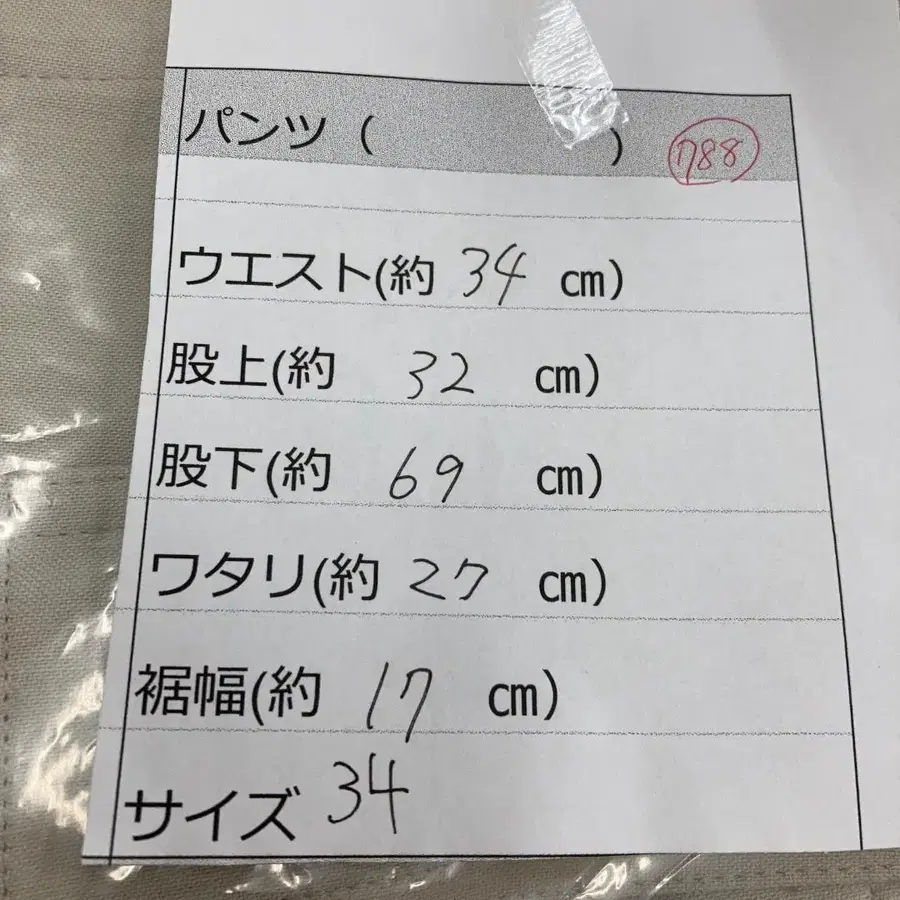 パンツ（　　　　　　） 788
ウエスト(約 34 cm)
股上(約 32 cm)
股下(約 69 cm)
ワタリ(約 27 cm)
裾幅(約 17 cm)
サイズ 34